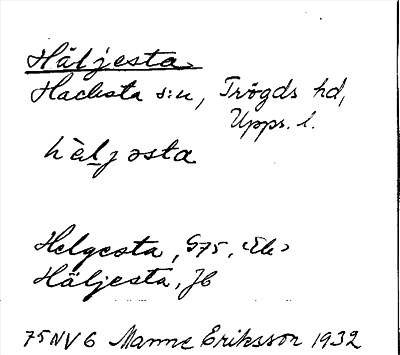 Häljesta
Hacksta s:n, Trögds hd,
Upps. l.
hèljəsta
Helgesta, G75, <Ek>
Häljesta, JC
75NV6 Manne Eriksson 1932